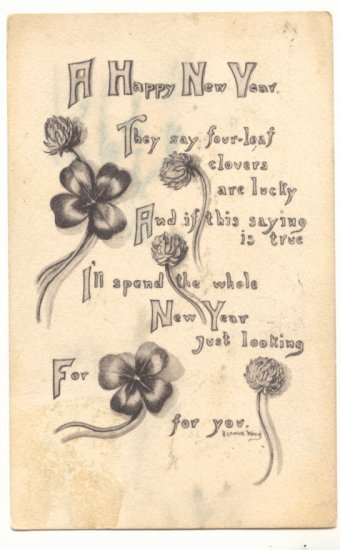 A Happy New Year.
They say four-leaf
clovers
are lucky
And if this saying
is true
I'll spend the whole
New Year
just looking
For
for you.